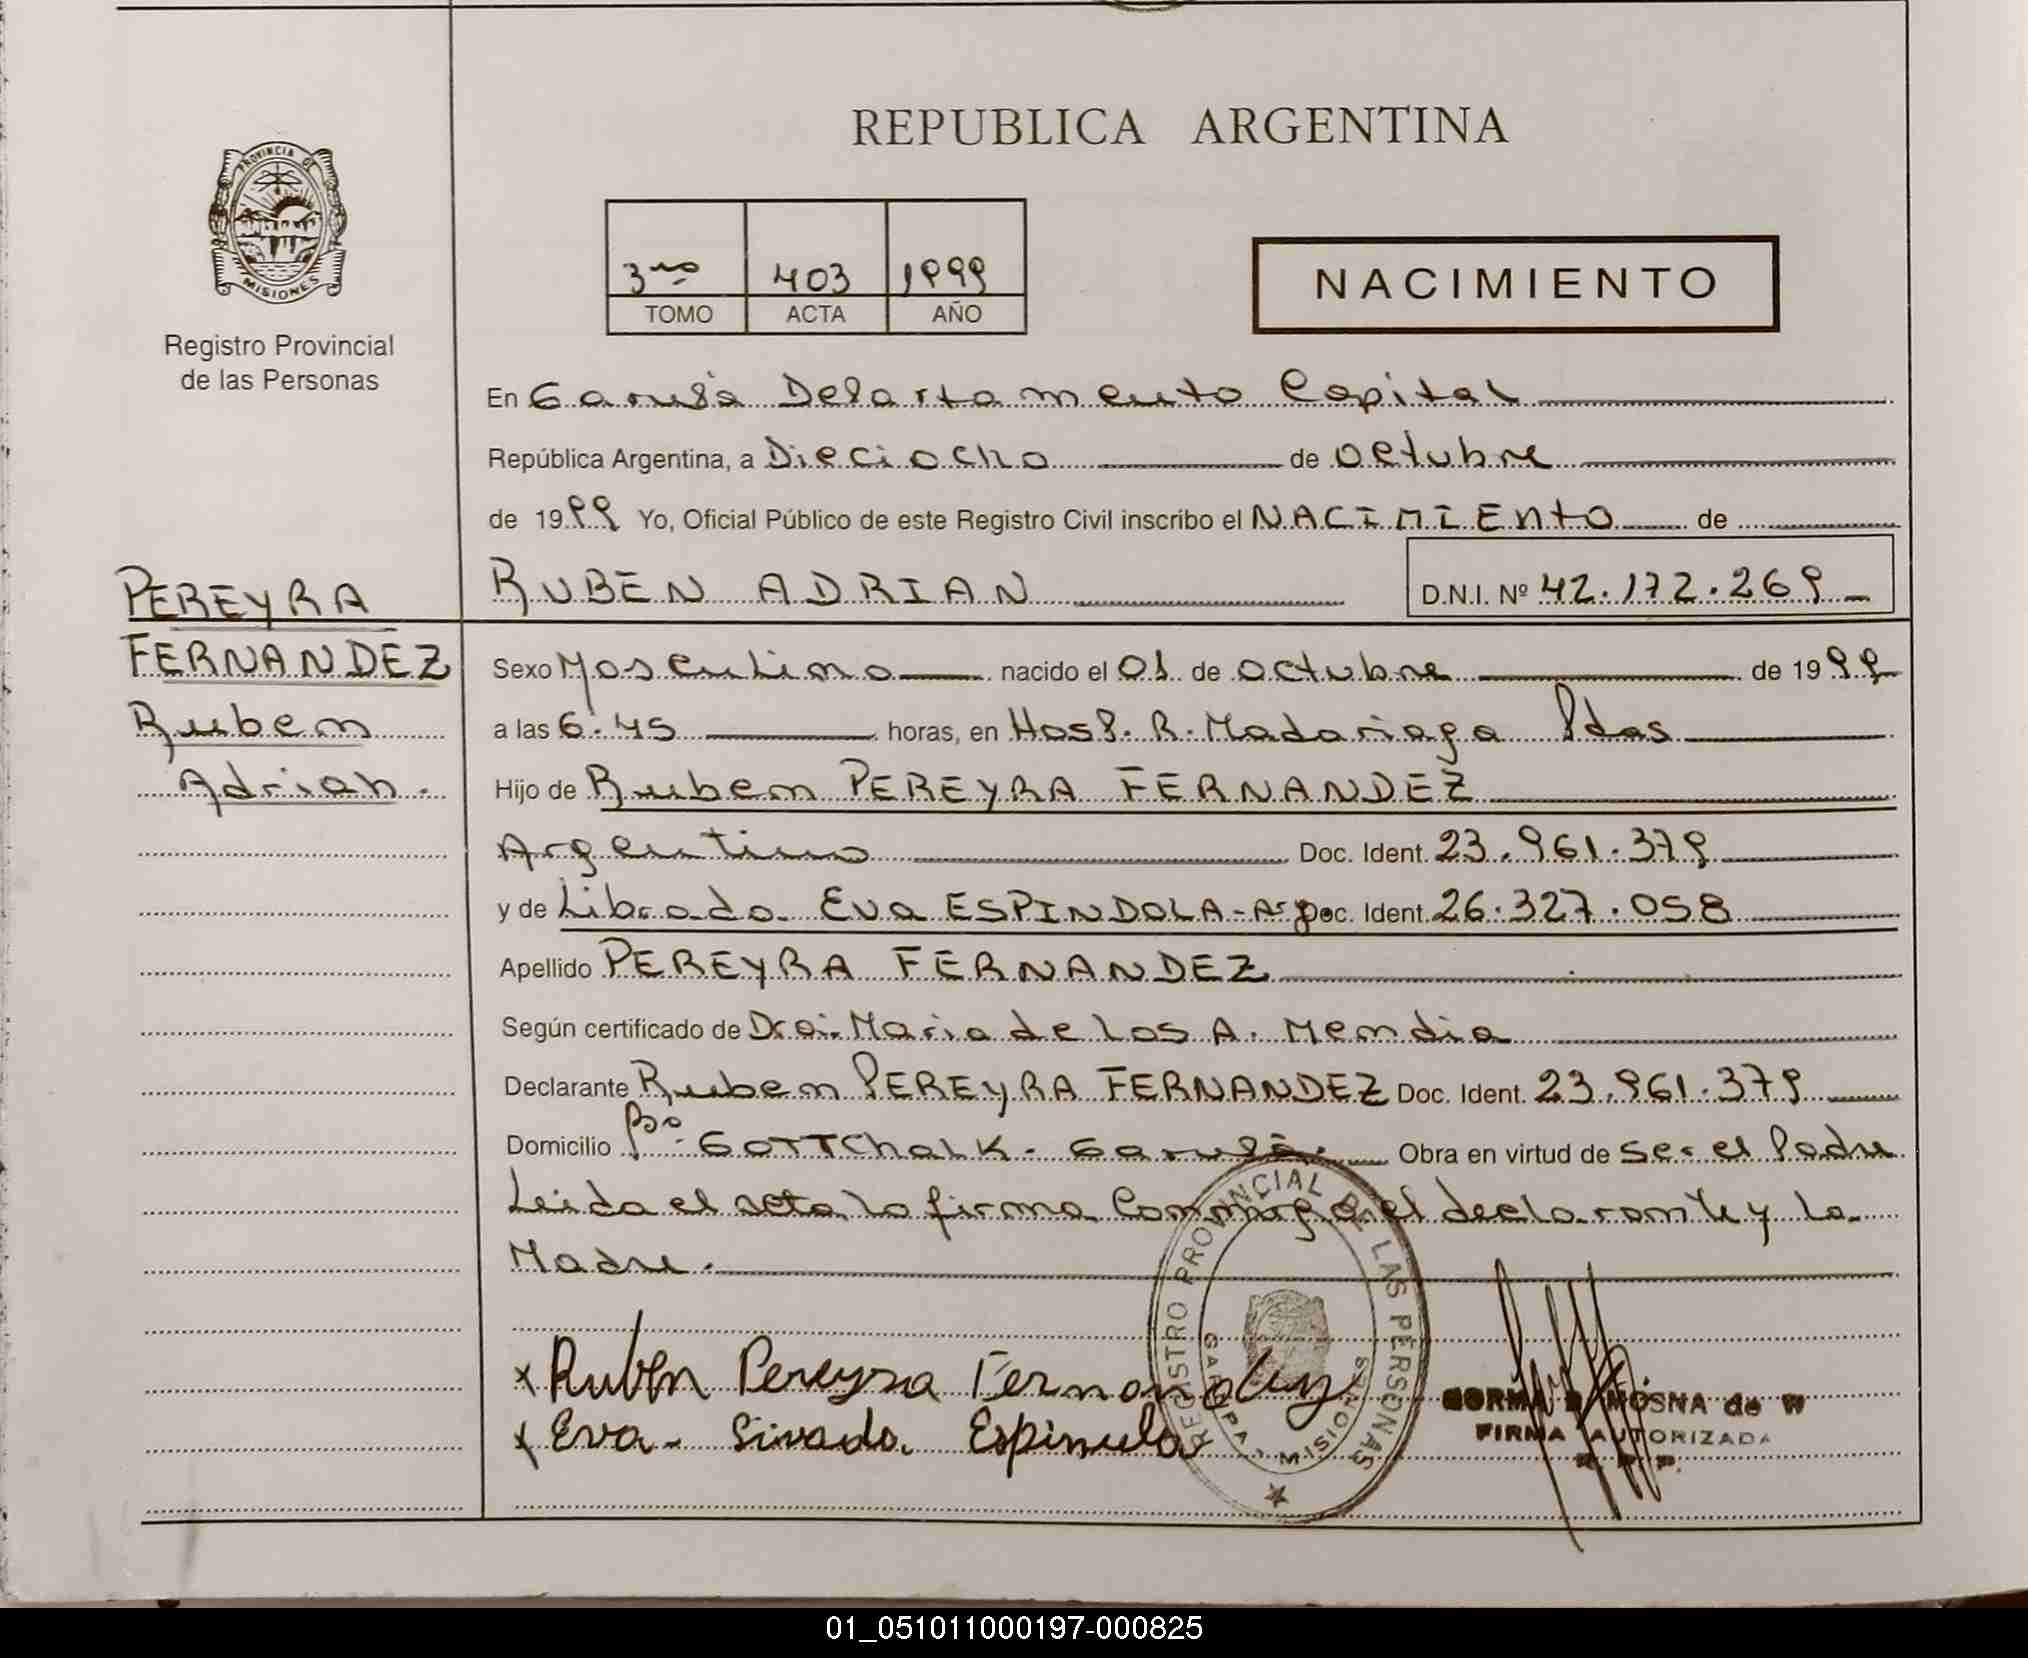 REPUBLICA ARGENTINA
PROVINCIA DE
MISIONES
Registro Provincial
de las Personas
3ro 403 1999
TOMO ACTA AÑO
NACIMIENTO
En Garupá Departamento Capital
República Argentina, a Dieciocho de octubre
de 1999 Yo, Oficial Público de este Registro Civil inscribo el NACIMIENTO de
RUBEN ADRIAN D.N.I. Nº 42.172.269
PEREYRA
FERNANDEZ
Ruben
Adrian.
Sexo Masculino nacido el 01 de octubre de 1999
a las 6.45 horas, en Hosp. R. Madariaga Pdas
Hijo de Ruben PEREYRA FERNANDEZ
Argentino Doc. Ident. 23.961.379
y de Librada Eva ESPINDOLA-Arg Doc. Ident. 26.327.058
Apellido PEREYRA FERNANDEZ
Según certificado de Dra. Maria de los A. Mendia
Declarante Ruben PEREYRA FERNANDEZ Doc. Ident. 23.961.379
Domicilio Bº GOTTChalK. Garupá. Obra en virtud de ser el Padre
Leida el acta la firma Conmigo el declarante y la
Madre.
x Ruben Pereyra Fernandez
x Eva Espinula
REGISTRO PROVINCIAL DE LAS PERSONAS
GARUPA - MISIONES
NORMA MOSNA de W
FIRMA AUTORIZADA
R. P. P.
01_051011000197-000825